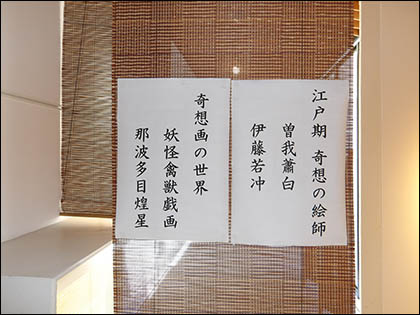 江戸期 奇想の絵師
曽我蕭白
伊藤若冲
奇想画の世界
妖怪禽獣戯画
那波多目煌星